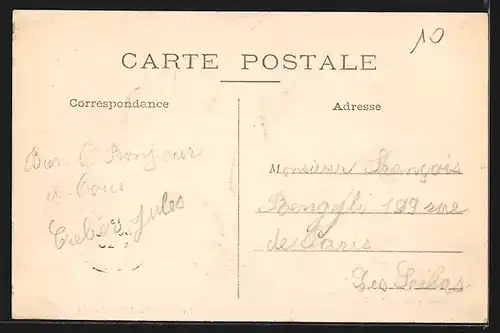 10
CARTE POSTALE
Correspondance
Adresse
Bon Bonjour
à tous
Jules
Monsieur François
189 rue
de Paris
Les Lilas